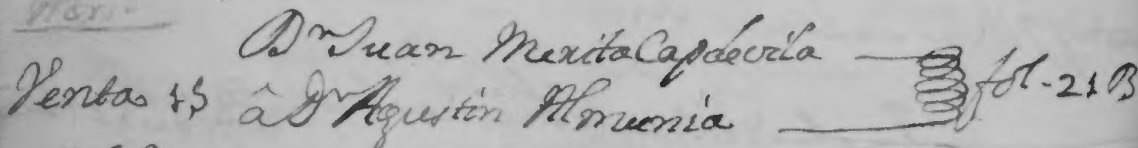 Dn Juan Merita Capdevila
Venta 15 â Dn Agustin Almunia fol-21B